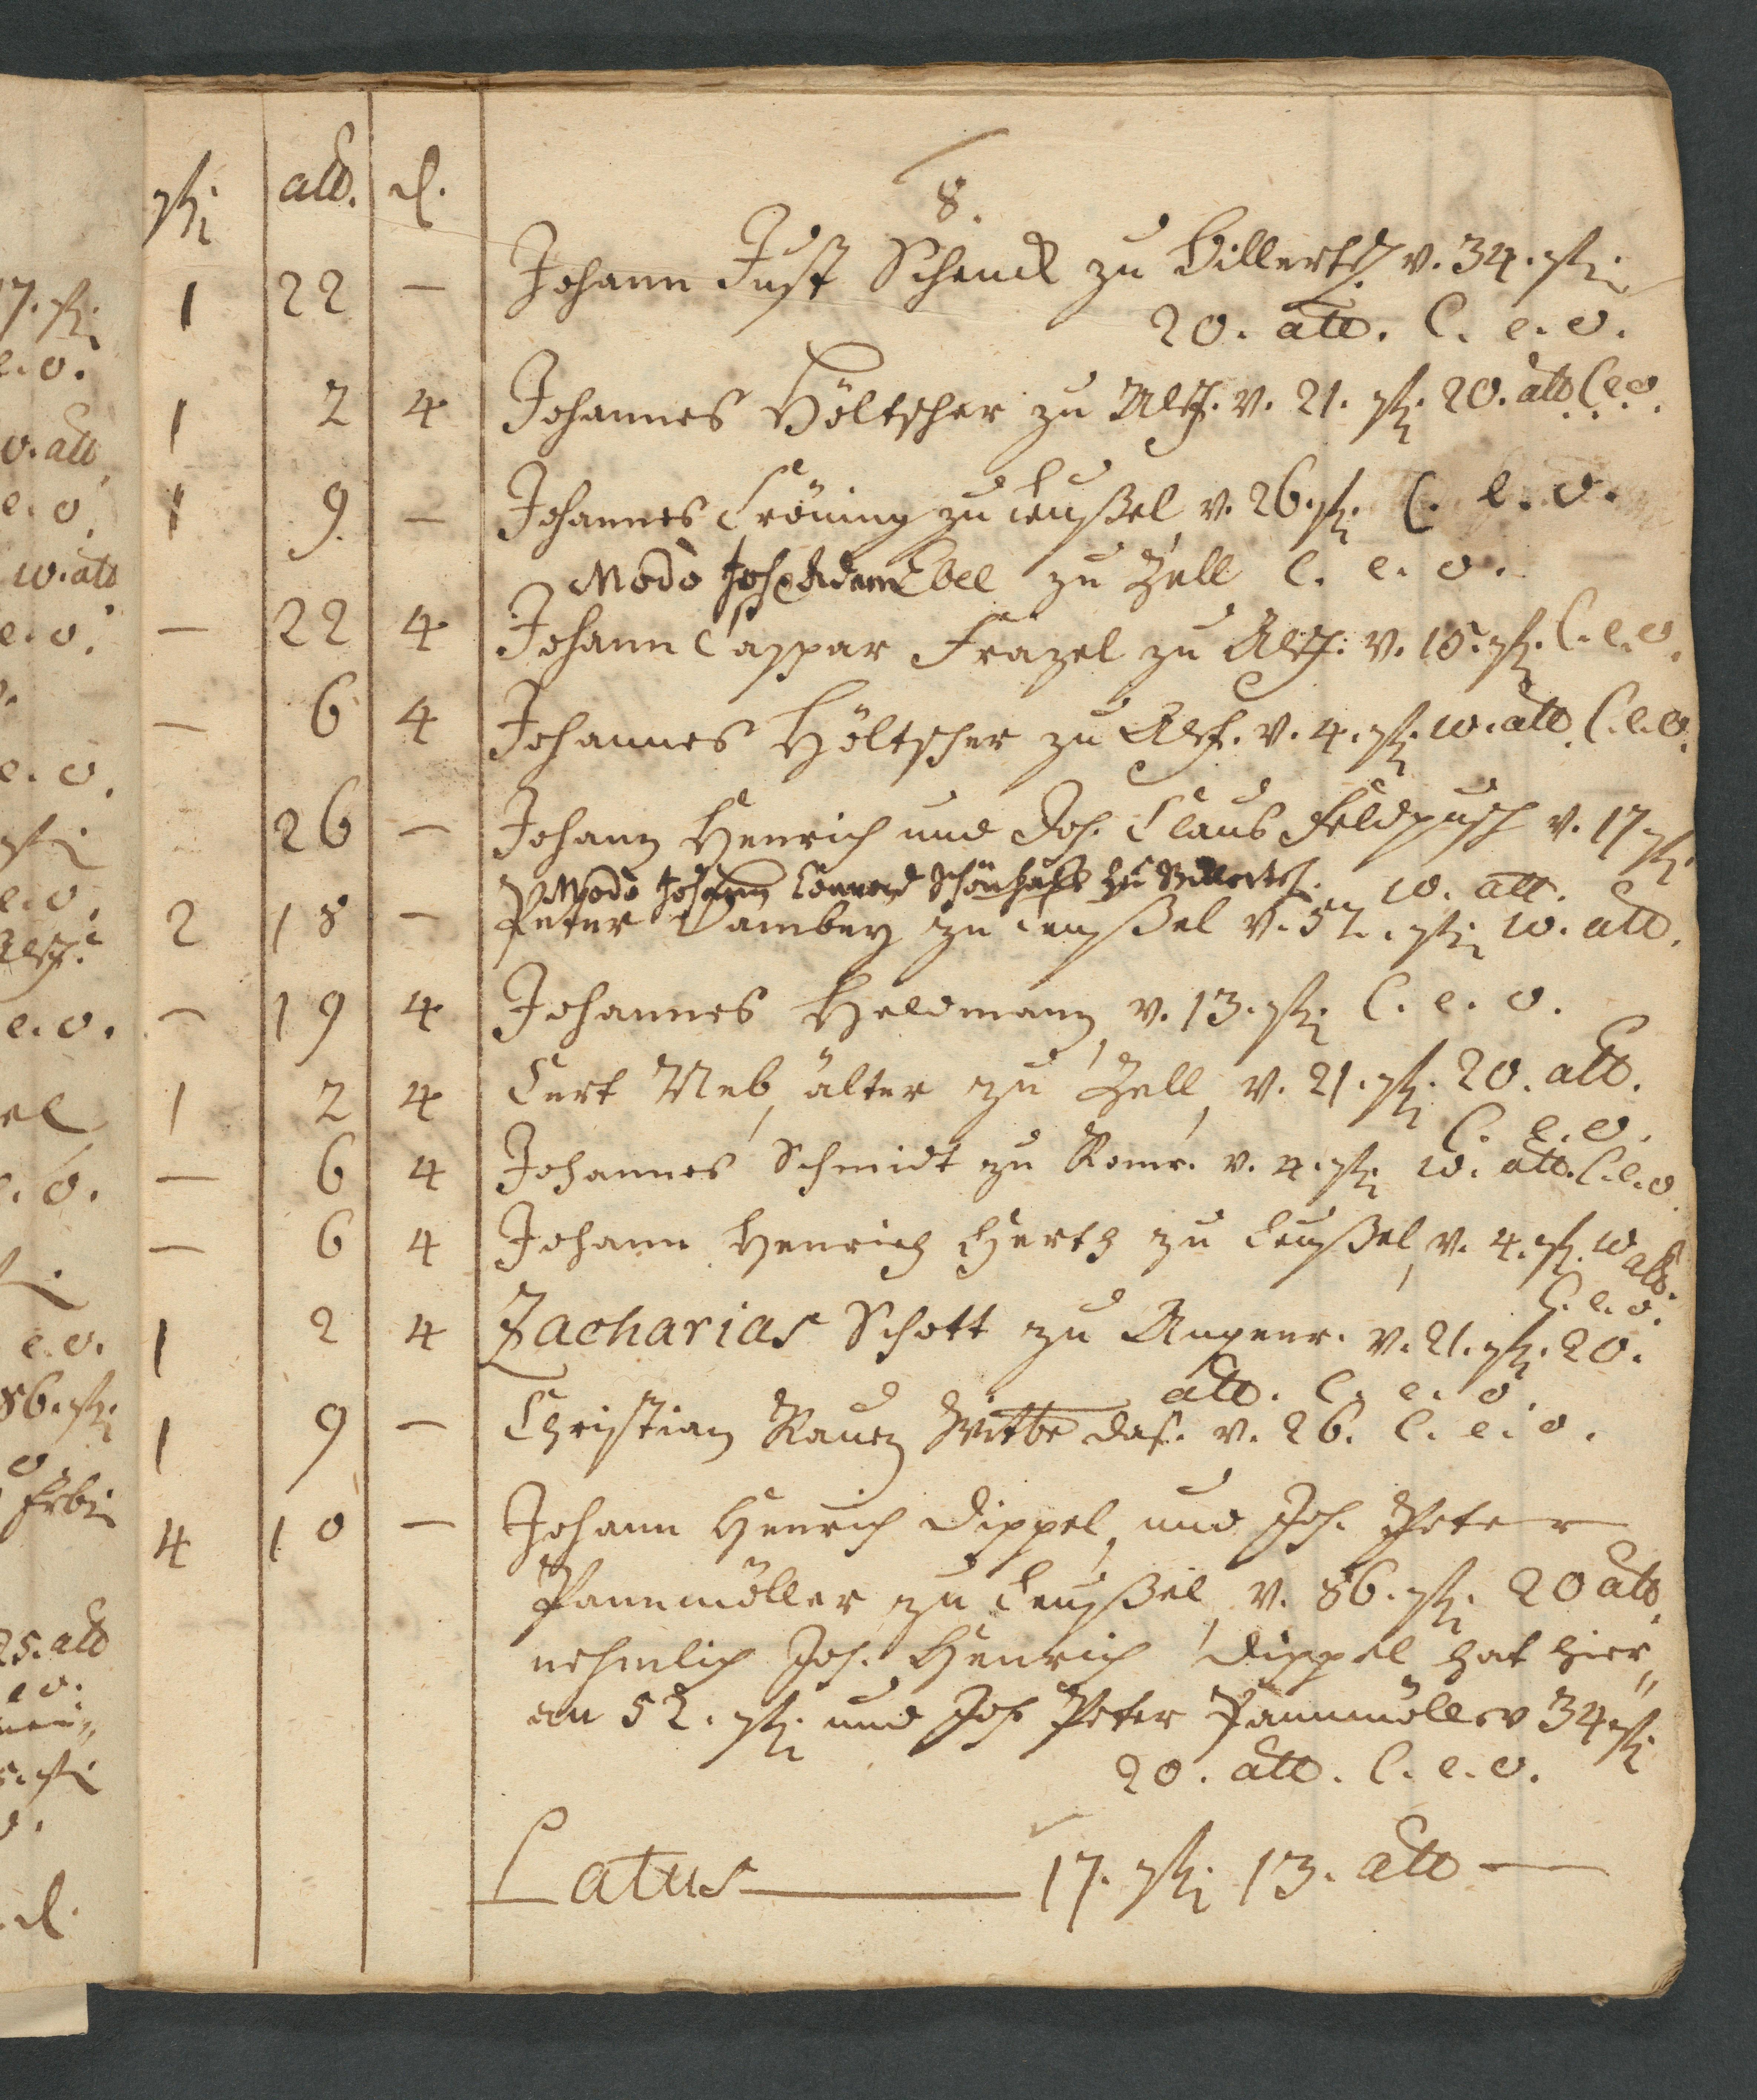 rthl alb. d.
8.
1 22 — Johann Just Schenck zu Billertsh. v. 34. rthl
20. alb. C. e. o.
1 2 4 Johannes Höltscher zu Alsf. v. 21. rthl 20. alb C. e. o.
1 9. — Johannes Cröning zu Leußel, v. 26. rthl C. e. o.
Modo Joh Adam Ebel zu Zell C. e. o.
— 22 4 Johann Caspar Frazel zu Alsf. v. 15. rthl. C. e. o.
— 6 4 Johannes Höltscher zu Alsf. v. 4. rthl 10. alb C. e. o.
26 — Johann Henrich und Joh. Claus Feldpusch v. 17 rthl
Modo Johann Conrad Schönhals zu Billertsh. 10. alb.
2 18 — Peter Dambey zu Leußel v. 52. rthl 10. alb.
— 19 4 Johannes Heldmann, v. 13. rthl C. e. o.
1 2 4 Curt Neb, älter zu Zell, v. 21. rthl 20. alb.
C. e. o.
— 6 4 Johannes Schmidt zu Romr. v. 4. rthl 10. alb. C. e. o
— 6 4 Johann Henrich Hertz zu Leußel, v. 4. rthl. 10 alb.
C. e. o.
1 2 4 Zacharias Schott zu Angenr. v. 21. rthl. 20.
alb. C. e. o.
1 9 — Christian Rauen Wittbe das. v. 26. C. e. o.
4 10 — Johann Henrich Dippel, und Joh. Peter
Pannmöller zu Leußel, v. 86. rthl 20 alb.
nehmlich Joh. Henrich Dippel hat hier„
an 52. rthl und Joh Peter Pannmöller 34 rthl
20. alb. C. e. o.
Latus 17. rthl 13. alb —